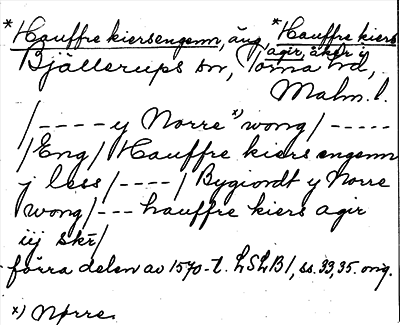 *Hauffre kiersengenn, äng, *Hauffre kiers
agir, åker i
Bjällerups sn, Torna hd,
Malm. l.
/---- y Norre *) wong/-----
/Eng/ Hauffre kiersengenn
j less /----/ Bygiordt y Norre
wong/--- hauffre kiers agir
iij skr/
förra delen av 1570-t. LSLB1, ss. 33, 35. orig.
*) Nørre.